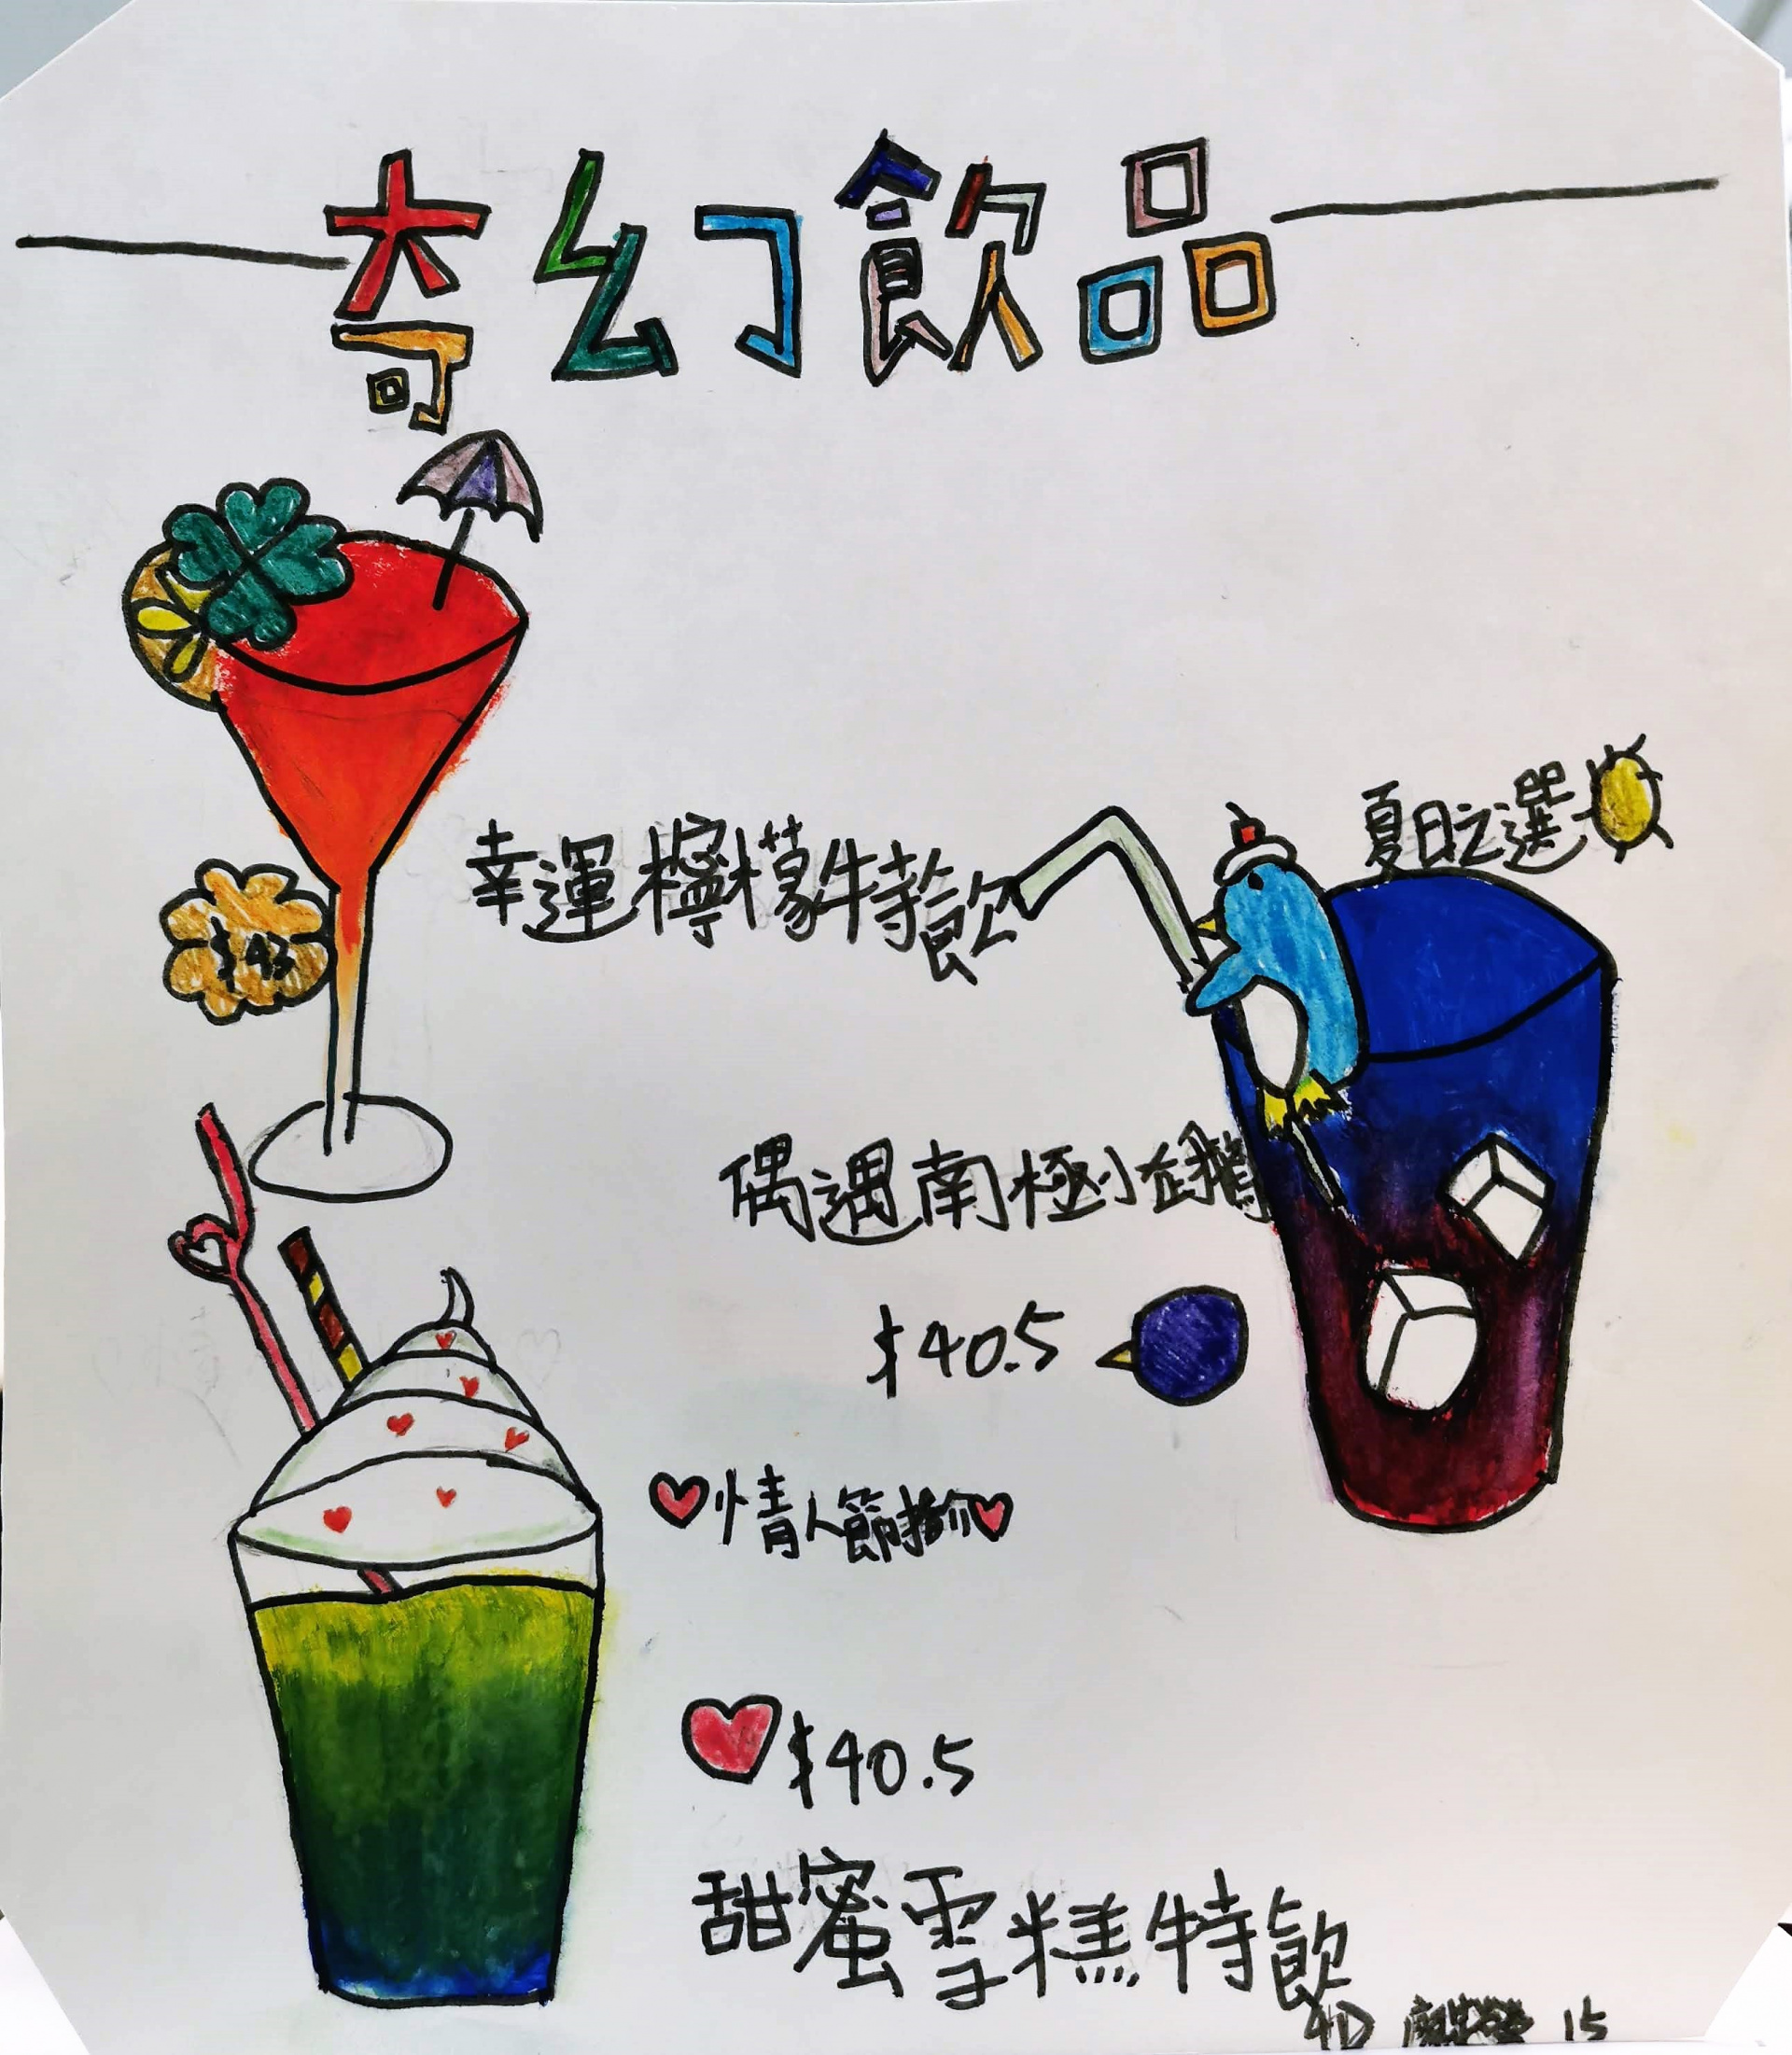 奇幻飲品
夏日之選
幸運檸檬特飲
$43
偶遇南極小企鵝
$40.5
情人節推介
$40.5
甜蜜雪糕特飲
4D 15